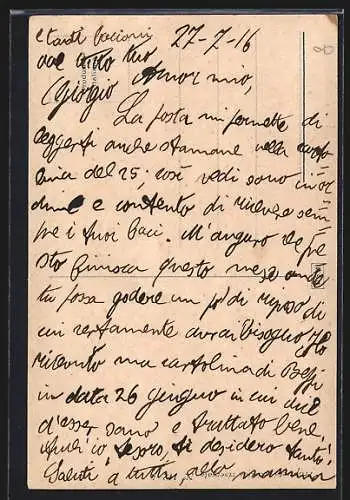 27-7-16
e tanti bacioni
dal tuo
Giorgio
Amor mio,
La posta mi permette di
leggerti anche stamane nella carto
lina del 25; così vedi sono in or
dine e contento di ricevere sem
pre i tuoi baci. M'auguro che pre
sto finisca questo mese onde
tu possa godere un po' di riposo di
cui certamente avrai bisogno. Ho
ricevuto una cartolina di Beppi
in data 26 giugno in cui dice
d'esser sano e trattato bene.
Anch'io tesoro, ti desidero tanto!
Saluti a tutti, alla mamma